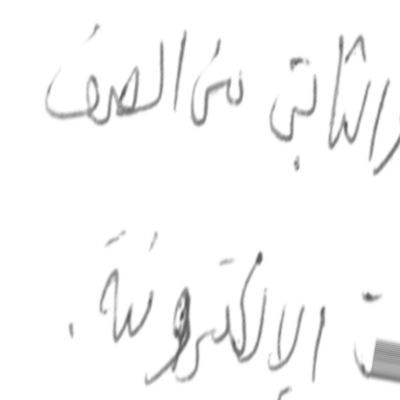 والثاني من الصف
الإلكترونية.